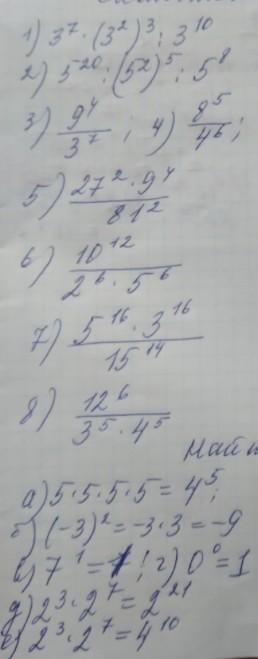 1) 3⁷ · (3²)³ : 3¹⁰
2) 5²⁰ : (5²)⁵ : 5⁸
3) 9⁴/3⁷ ; 4) 8⁵/4⁶ ;
5) 27² · 9⁴/81²
6) 10¹²/2⁶ · 5⁶
7) 5¹⁶ · 3¹⁶/15¹⁴
8) 12⁶/3⁵ · 4⁵
а) 5 · 5 · 5 · 5 = 4⁵ ;
б) (-3)² = -3 · 3 = -9
в) 7¹ = 1 ; г) 0⁰ = 1
д) 2³ · 2⁷ = 2²¹
е) 2³ · 2⁷ = 4¹⁰